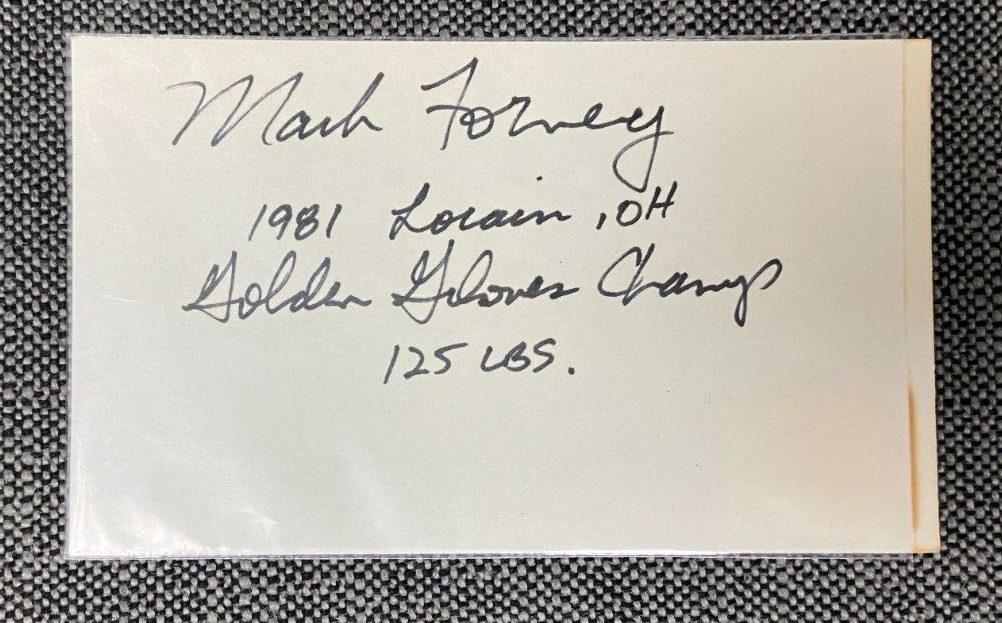 Mark Forney
1981 Lorain, OH
Golden Gloves Champ
125 LBS.